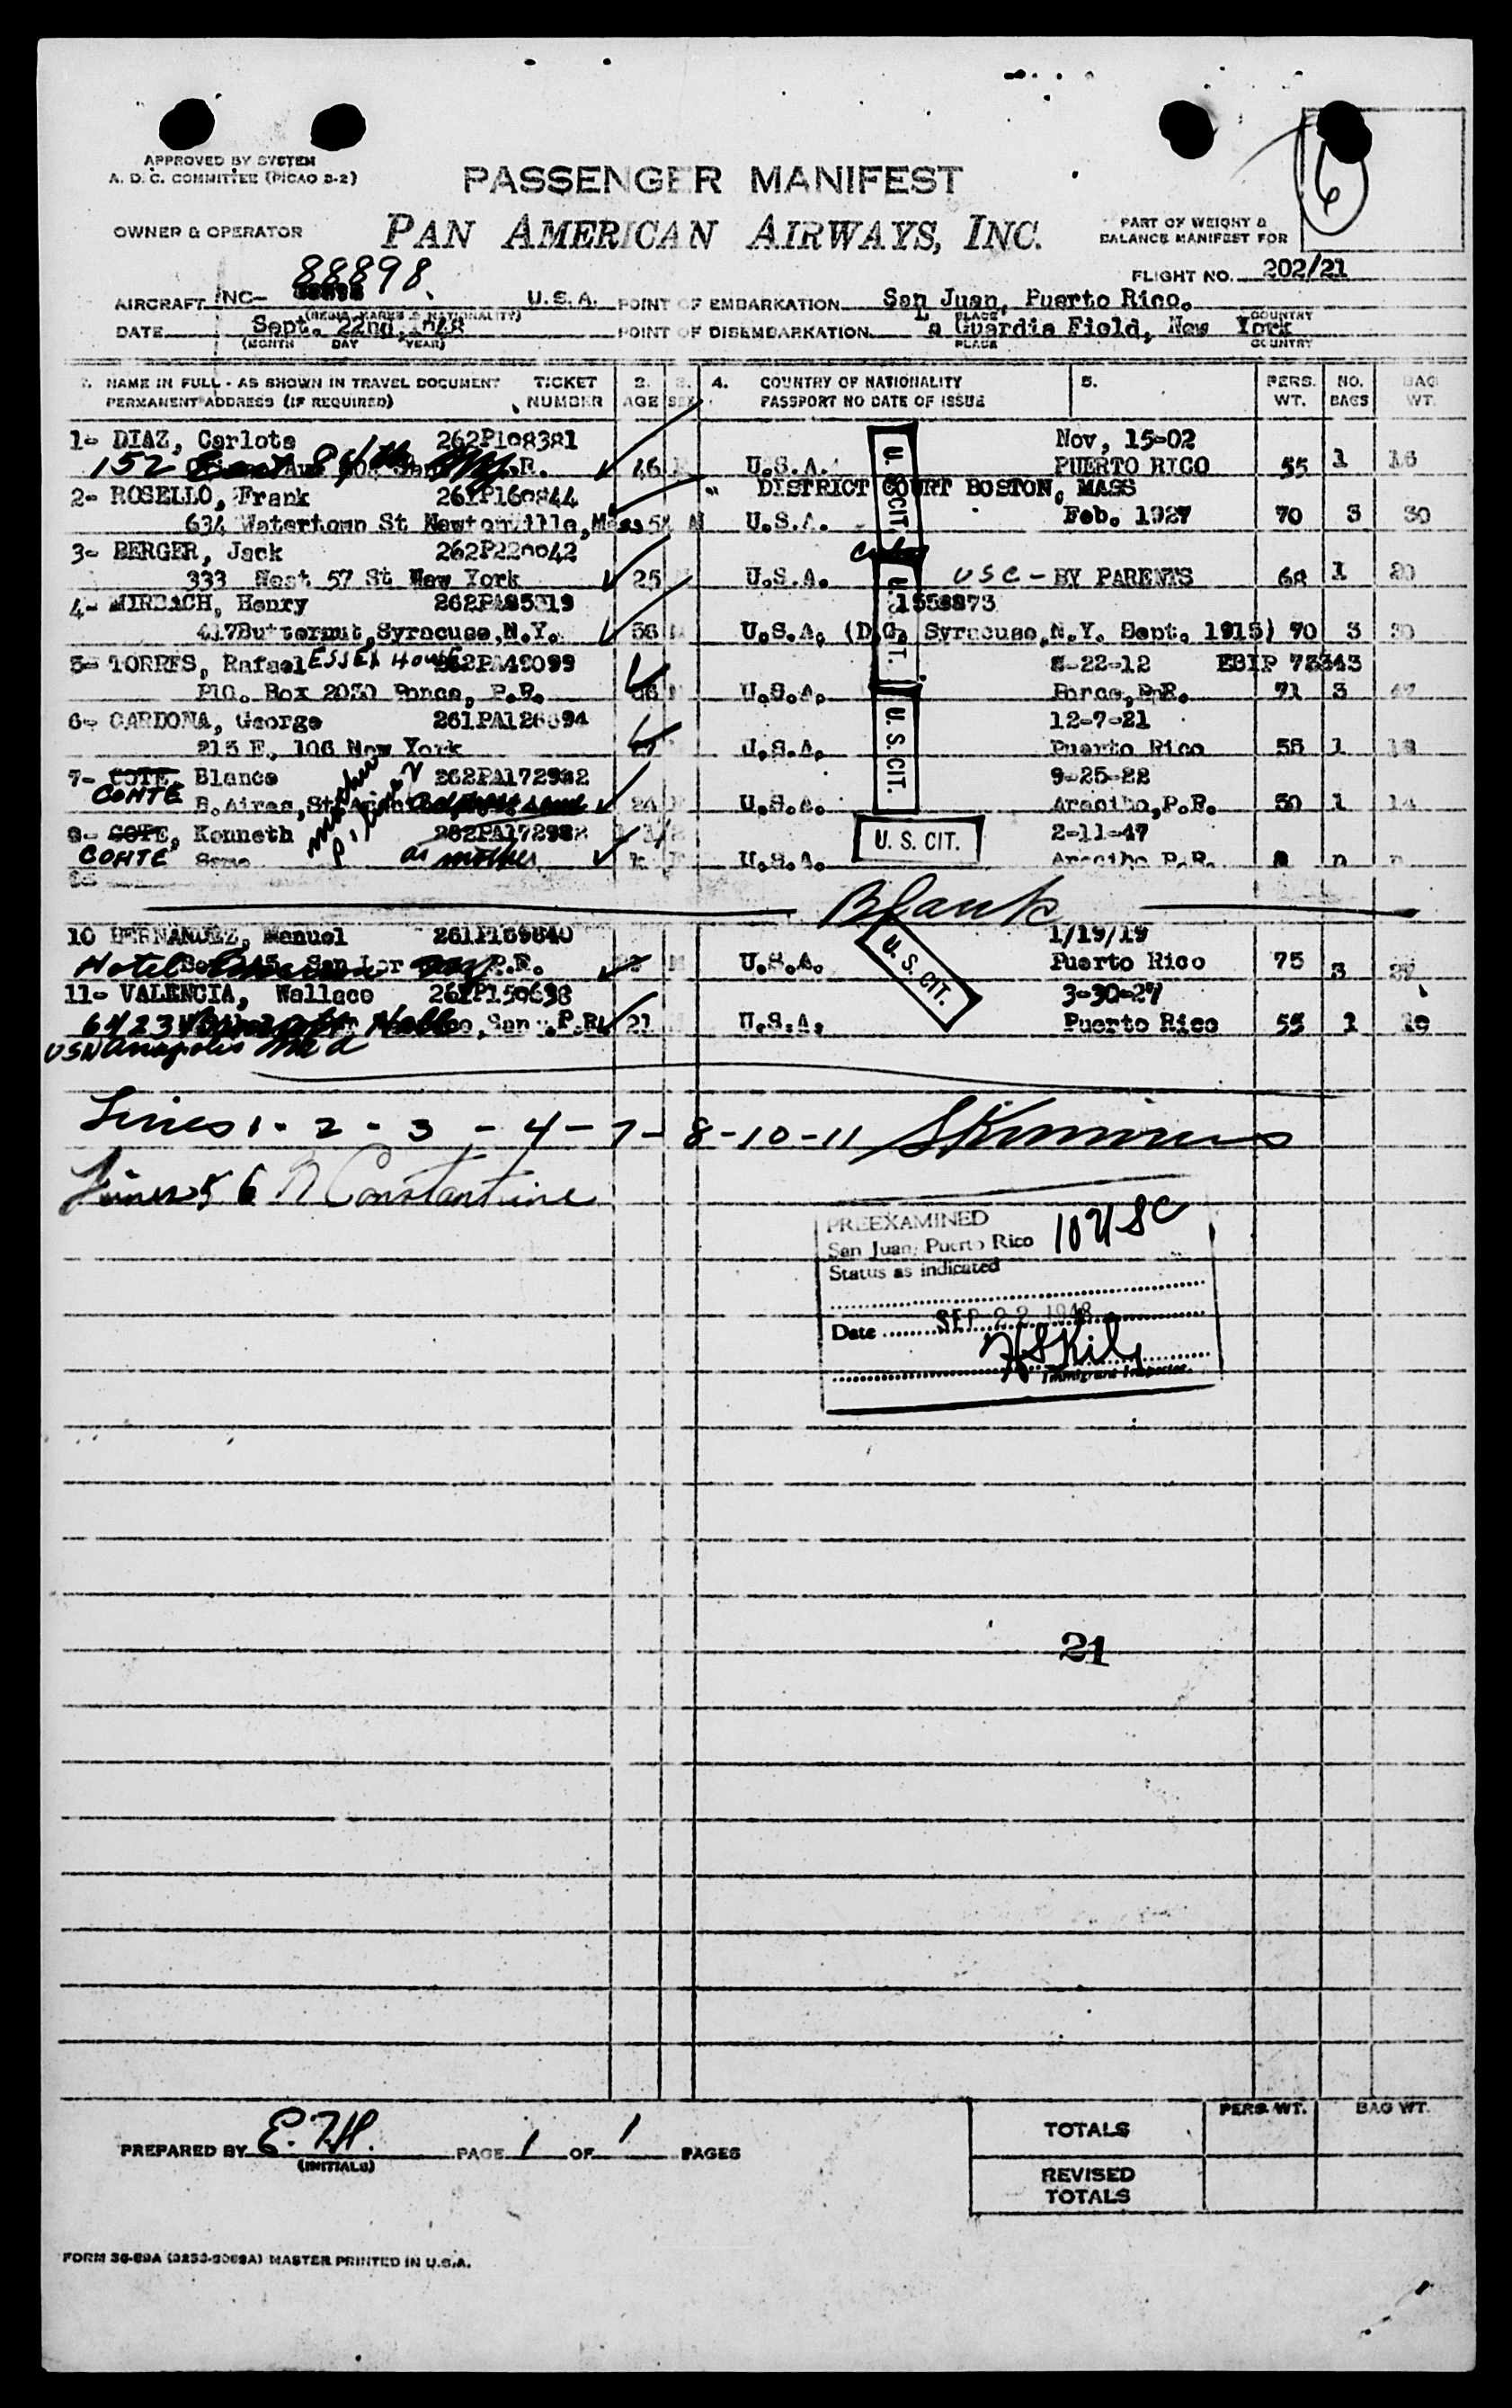 APPROVED BY SYSTEM
A. D. C. COMMITTEE (PICAO 3-2)
PASSENGER MANIFEST
6
OWNER & OPERATOR
PAN AMERICAN AIRWAYS, INC.
PART OF WEIGHT &
BALANCE MANIFEST FOR
FLIGHT NO. 202/21
88898
AIRCRAFT NC- U.S.A. POINT OF EMBARKATION San Juan, Puerto Rico.
(REGIS. MARKS & NATIONALITY) PLACE COUNTRY
DATE Sept. 22nd, 1948 POINT OF DISEMBARKATION La Guardia Field, New York
(MONTH DAY YEAR) PLACE COUNTRY
1. NAME IN FULL - AS SHOWN IN TRAVEL DOCUMENT TICKET 2. 3. 4. COUNTRY OF NATIONALITY 5. PERS. NO. BAG
PERMANENT ADDRESS (IF REQUIRED) NUMBER AGE SEX PASSPORT NO DATE OF ISSUE WT. BAGS WT.
1- DIAZ, Carlota 262P108381 Nov, 15-02
152 P.R. 46 U.S.A. PUERTO RICO 55 1 16
2- ROSELLO, Frank 261P160844 DISTRICT COURT BOSTON, MASS
634 Watertown St Newtonville, Mass 54 M U.S.A. Feb. 1927 70 3 30
3- BERGER, Jack 262P220042
333 West 57 St New York 25 U.S.A. USC - BY PARENTS 68 1 20
4- MIRBACH, Henry 262PA85319 1558873
417 Butternut, Syracuse, N.Y. 56 U.S.A. (D.C. Syracuse, N.Y. Sept. 1915) 70 3 30
5- TORRES, Rafael ESSEX HOUSE 262PA48099 8-22-12 EBIP 73343
P.O. Box 2030 Ponce, P.R. 36 U.S.A. Ponce, P.R. 71 3 47
6- CARDONA, George 261PA126694 12-7-21
215 E. 106 New York U.S.A. Puerto Rico 58 1 18
7- COTE, Blanca 262PA172982 9-25-22
CONTE B. Aires, St 24 U.S.A. Arecibo, P.R. 50 1 14
8- COTE, Kenneth 262PA172982 2-11-47
CONTE Same as mother U.S.A. Arecibo P.R.
U.S. CIT.
U.S. CIT.
U.S. CIT.
U. S. CIT.
Blank
10 HERNANDEZ, Manuel 261P159840 1/19/19
Hotel P.R. M U.S.A. Puerto Rico 75 3
U. S. CIT.
11- VALENCIA, Wallace 261P150638 3-30-27
6423 Hall San P.R. 21 U.S.A. Puerto Rico 55 1 19
USN Anapolis Md
Lines 1 - 2 - 3 - 4 - 7 - 8 - 10 - 11
Lines 5 6 N Constantine
PREEXAMINED 10 USC
San Juan, Puerto Rico
Status as indicated
Date SEP 22 1948
Immigrant Inspector
21
PREPARED BY E.H. PAGE 1 OF 1 PAGES
(INITIALS)
PERS. WT. BAG WT.
TOTALS
REVISED
TOTALS
FORM 36-89A (3253-3089A) MASTER PRINTED IN U.S.A.